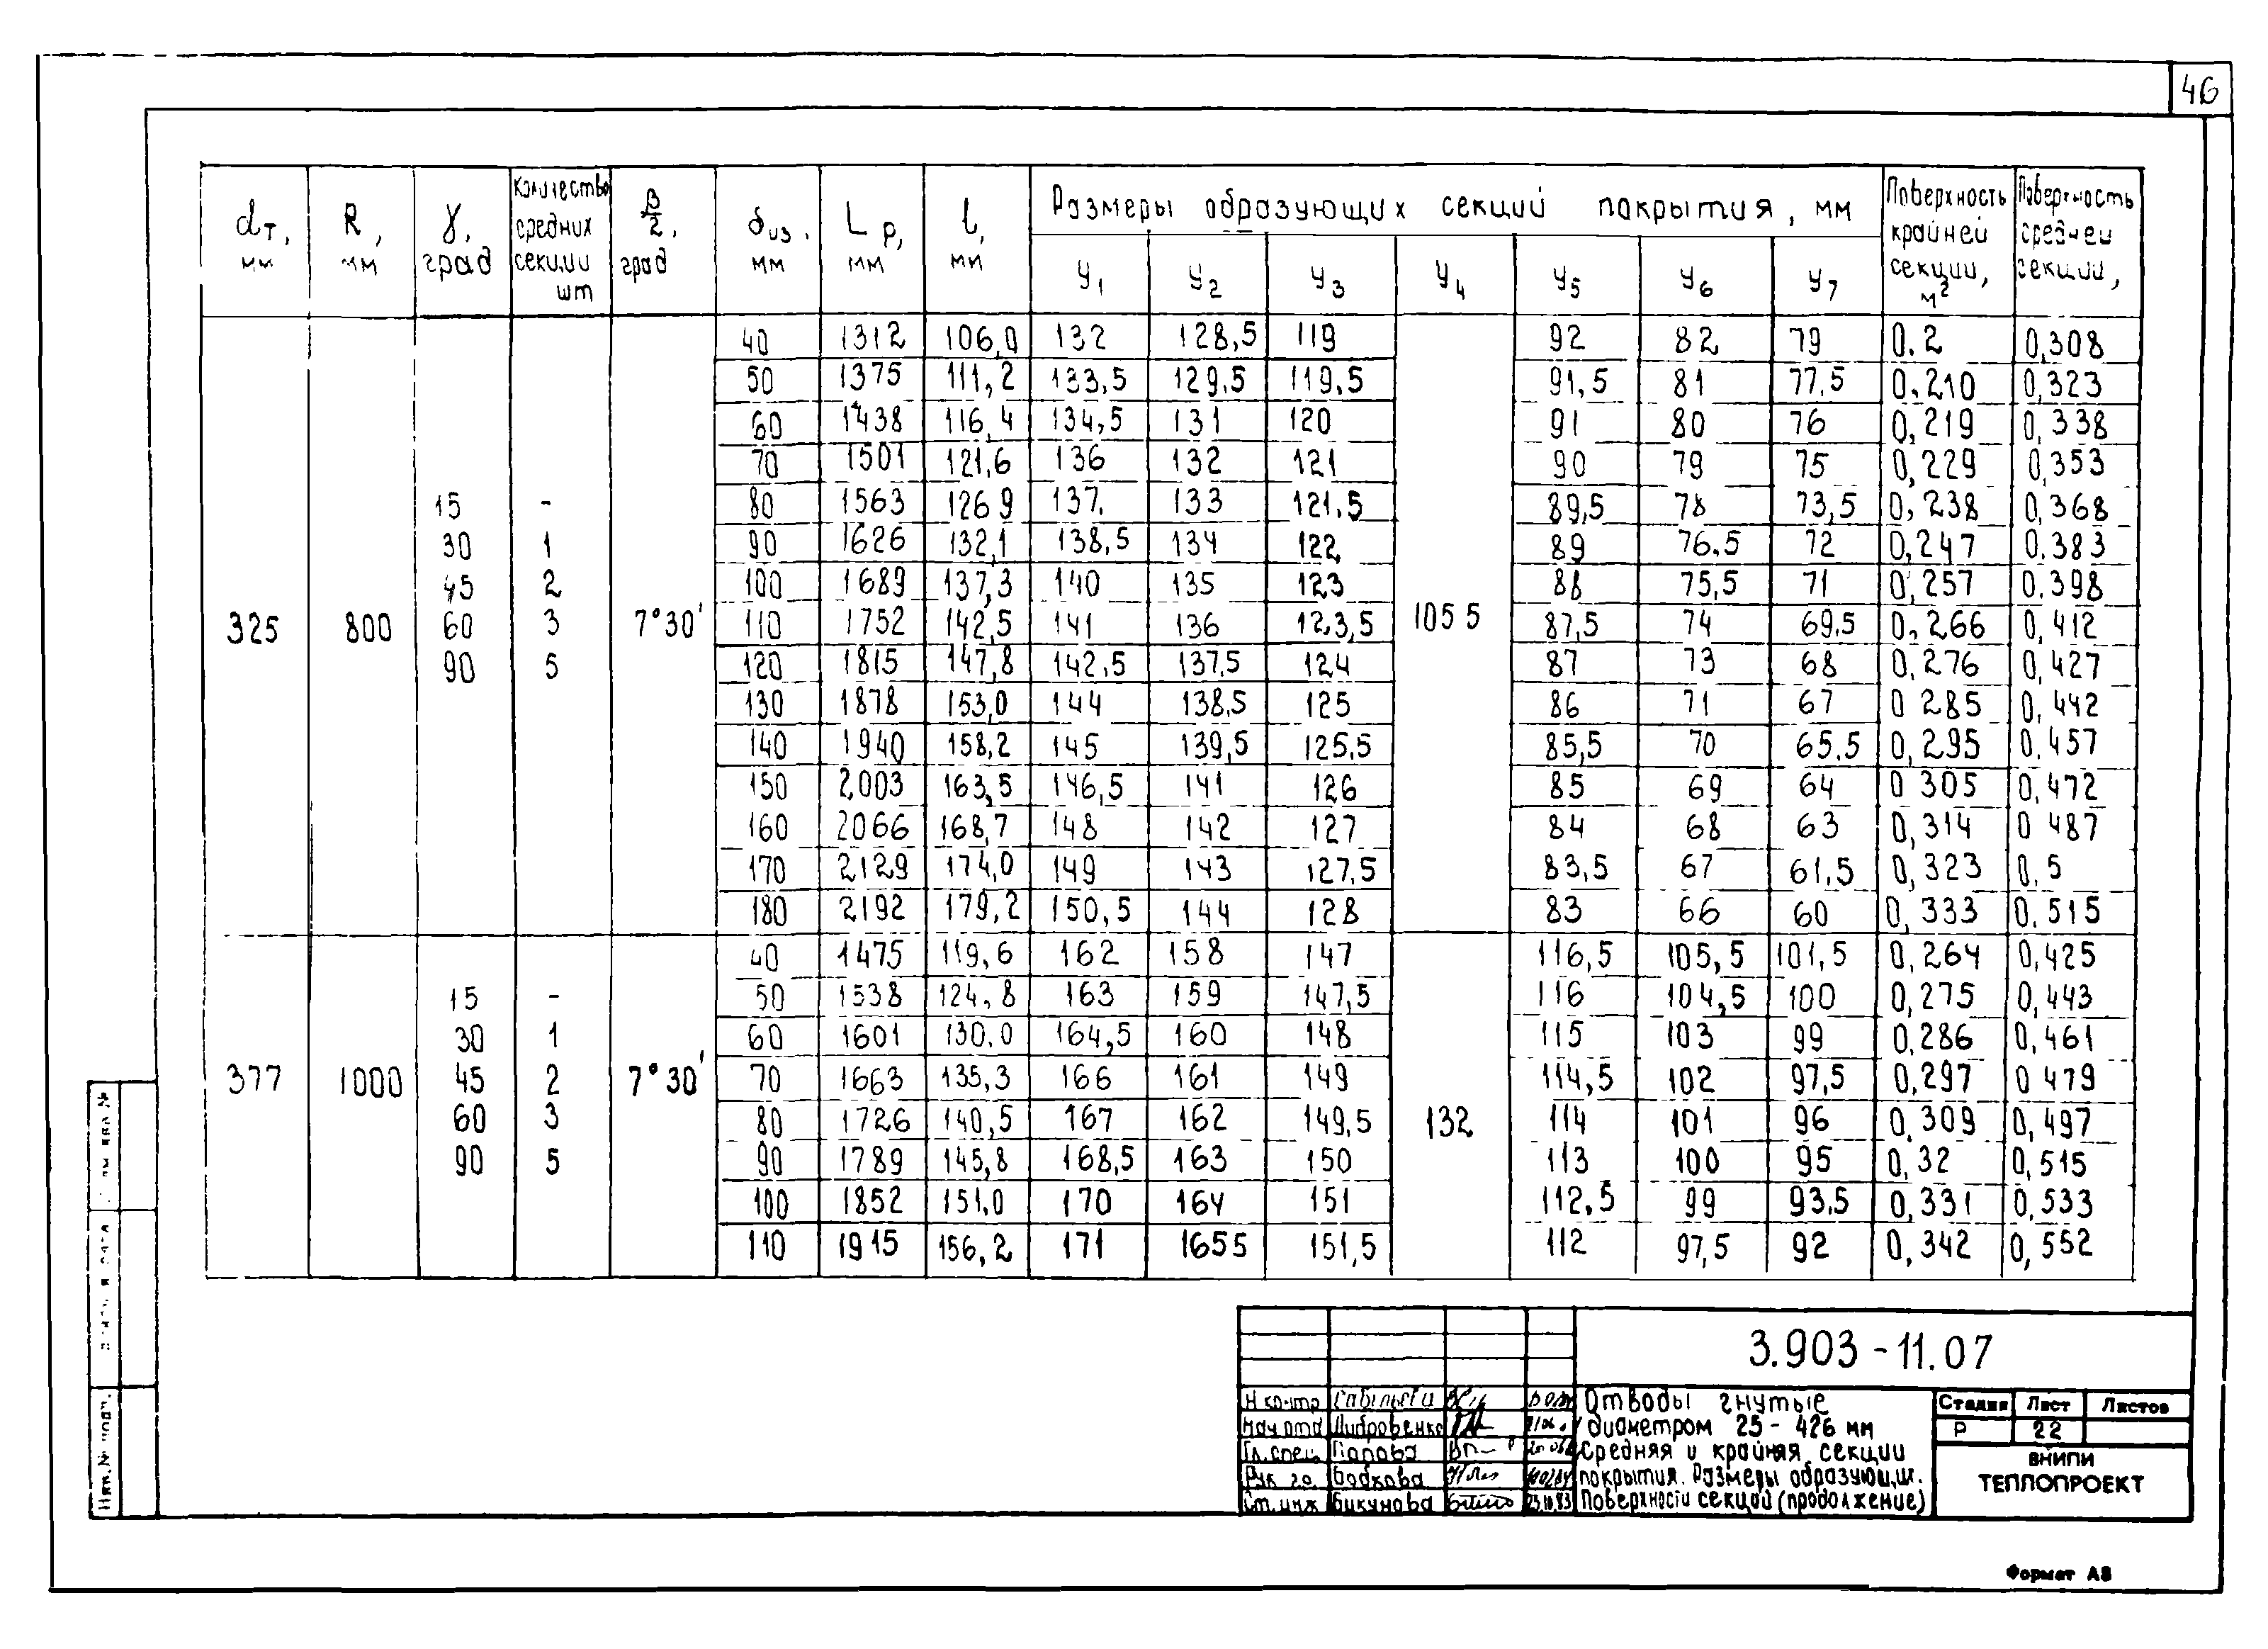 46
dт, мм R, мм γ, град Количество средних секции шт β/2, град δиз. мм Lр, мм l, мм Размеры образующих секций покрытия, мм Поверхность крайней секции, м² Поверхность средней секции,
У1 У2 У3 У4 У5 У6 У7
40 1312 106,0 132 128,5 119 92 82 79 0.2 0,308
50 1375 111,2 133,5 129,5 119,5 91,5 81 77,5 0,210 0,323
60 1438 116,4 134,5 131 120 91 80 76 0,219 0,338
70 1501 121,6 136 132 121 90 79 75 0,229 0,353
15 - 80 1563 126 9 137, 133 121,5 89,5 78 73,5 0,238 0,368
30 1 90 1626 132,1 138,5 134 122 89 76,5 72 0,247 0.383
45 2 100 1689 137,3 140 135 123 88 75,5 71 0,257 0.398
325 800 60 3 7°30' 110 1752 142,5 141 136 123,5 105 5 87,5 74 69,5 0,266 0,412
90 5 120 1815 147,8 142,5 137,5 124 87 73 68 0,276 0,427
130 1878 153,0 144 138,5 125 86 71 67 0 285 0,442
140 1940 158,2 145 139,5 125,5 85,5 70 65,5 0,295 0.457
150 2003 163,5 146,5 141 126 85 69 64 0 305 0,472
160 2066 168,7 148 142 127 84 68 63 0,314 0 487
170 2129 174,0 149 143 127,5 83,5 67 61,5 0,323 0,5
180 2192 179,2 150,5 144 128 83 66 60 0,333 0.515
40 1475 119,6 162 158 147 116,5 105,5 101,5 0,264 0,425
15 - 50 1538 124,8 163 159 147,5 116 104,5 100 0,275 0,443
30 1 60 1601 130,0 164,5 160 148 115 103 99 0,286 0,461
377 1000 45 2 7°30' 70 1663 135,3 166 161 149 114,5 102 97,5 0,297 0 479
60 3 80 1726 140,5 167 162 149,5 132 114 101 96 0,309 0,497
90 5 90 1789 145,8 168,5 163 150 113 100 95 0,32 0,515
100 1852 151,0 170 164 151 112,5 99 93,5 0,331 0,533
110 1915 156,2 171 165 5 151,5 112 97,5 92 0,342 0,552
3.903-11.07
Н контр
Нач отд
Гл. спец Попова
Рук гр. Бобкова
Ст. инж Бикунова 25.10.83
Отводы гнутые
диаметром 25-426 мм
Средняя и крайняя секции
покрытия. Размеры образующих.
Поверхности секций (продолжение)
Стадия Лист Листов
Р 22
ВНИПИ
ТЕПЛОПРОЕКТ
Инв. № подл.
Формат А3